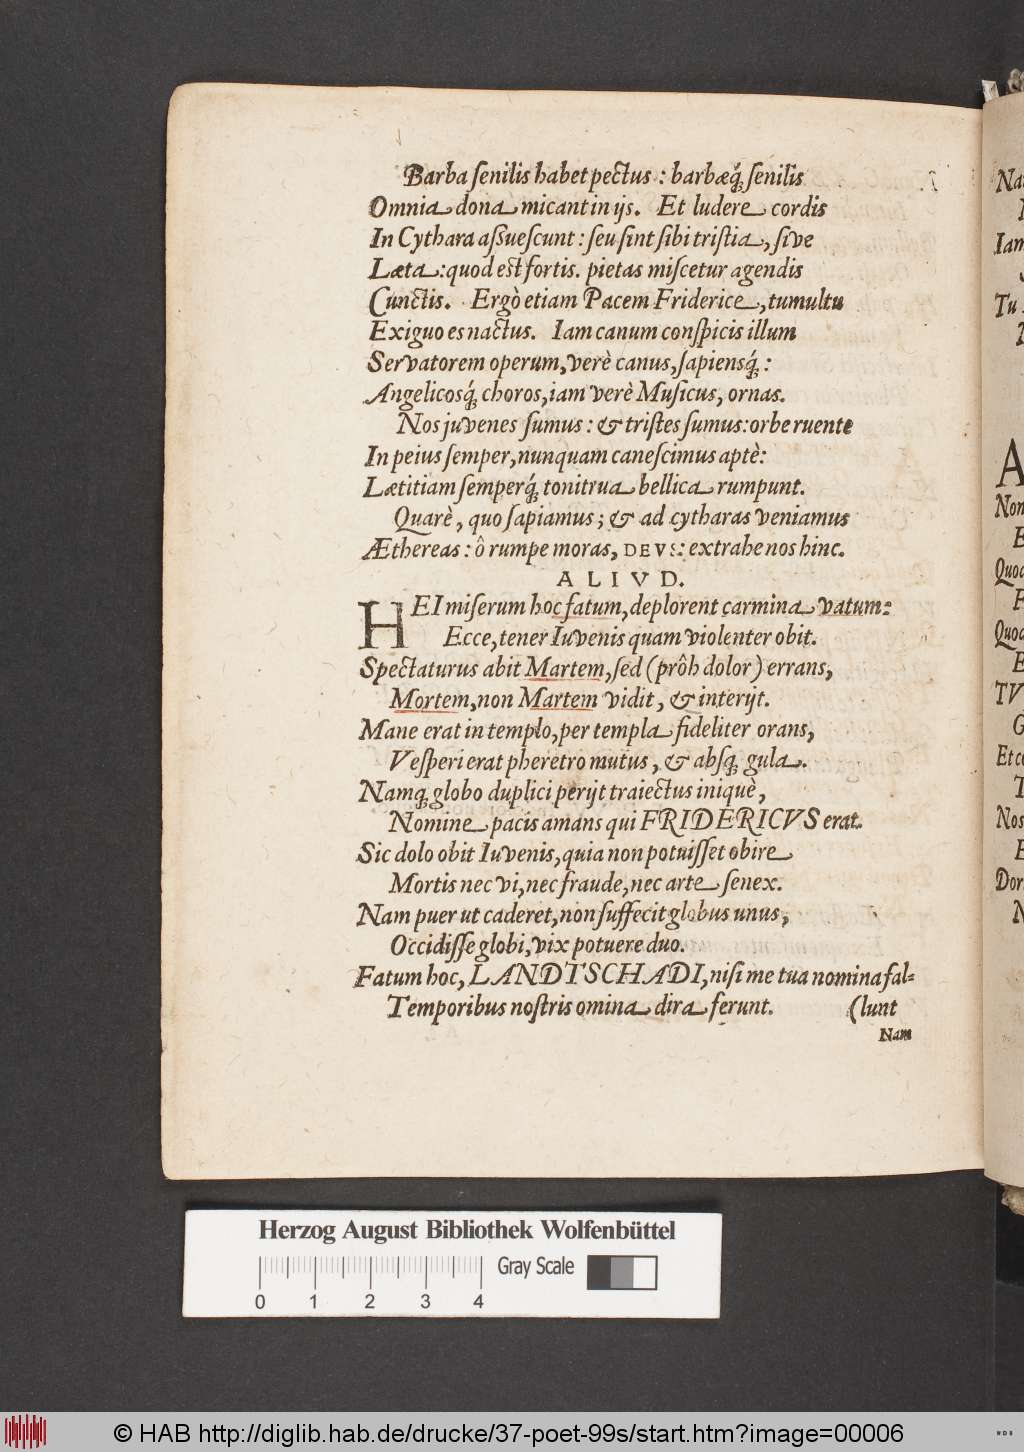 Barba ſenilis habet pectus : barbæq́; ſenilis
Omnia dona micant in ijs. Et ludere cordis
In Cythara aſſueſcunt : ſeu ſint ſibi triſtia, ſive
Læta : quod eſt fortis. pietas miſcetur agendis
Cunctis. Ergò etiam Pacem Friderice, tumultu
Exiguo es nactus. Iam canum conſpicis illum
Servatorem operum, verè canus, ſapiensq́; :
Angelicosq́; choros, iam verè Muſicus, ornas.
Nos juvenes ſumus : & triſtes ſumus : orbe ruente
In peius ſemper, nunquam caneſcimus aptè :
Lætitiam ſemperq́; tonitrua bellica rumpunt.
Quarè, quo ſapiamus ; & ad cytharas veniamus
Æthereas : ô rumpe moras, DEVS : extrahe nos hinc.
ALIVD.
HEI miſerum hoc fatum, deplorent carmina vatum :
Ecce, tener Iuvenis quam violenter obit.
Spectaturus abit Martem, ſed (prôh dolor) errans,
Mortem, non Martem vidit, & interijt.
Mane erat in templo, per templa fideliter orans,
Veſperi erat pheretro mutus, & absq; gula.
Namq; globo duplici perijt traiectus iniquè,
Nomine pacis amans qui FRIDERICVS erat.
Sic dolo obit Iuvenis, quia non potuiſſet obire
Mortis nec vi, nec fraude, nec arte ſenex.
Nam puer ut caderet, non ſuffecit globus unus,
Occidiſſe globi, vix potuere duo.
Fatum hoc, LANDTSCHADI, niſi me tua nomina fal-
Temporibus noſtris omina dira ferunt. (lunt
Nam
Nos
Herzog August Bibliothek Wolfenbüttel
Gray Scale
0 1 2 3 4
© HAB http://diglib.hab.de/drucke/37-poet-99s/start.htm?image=00006